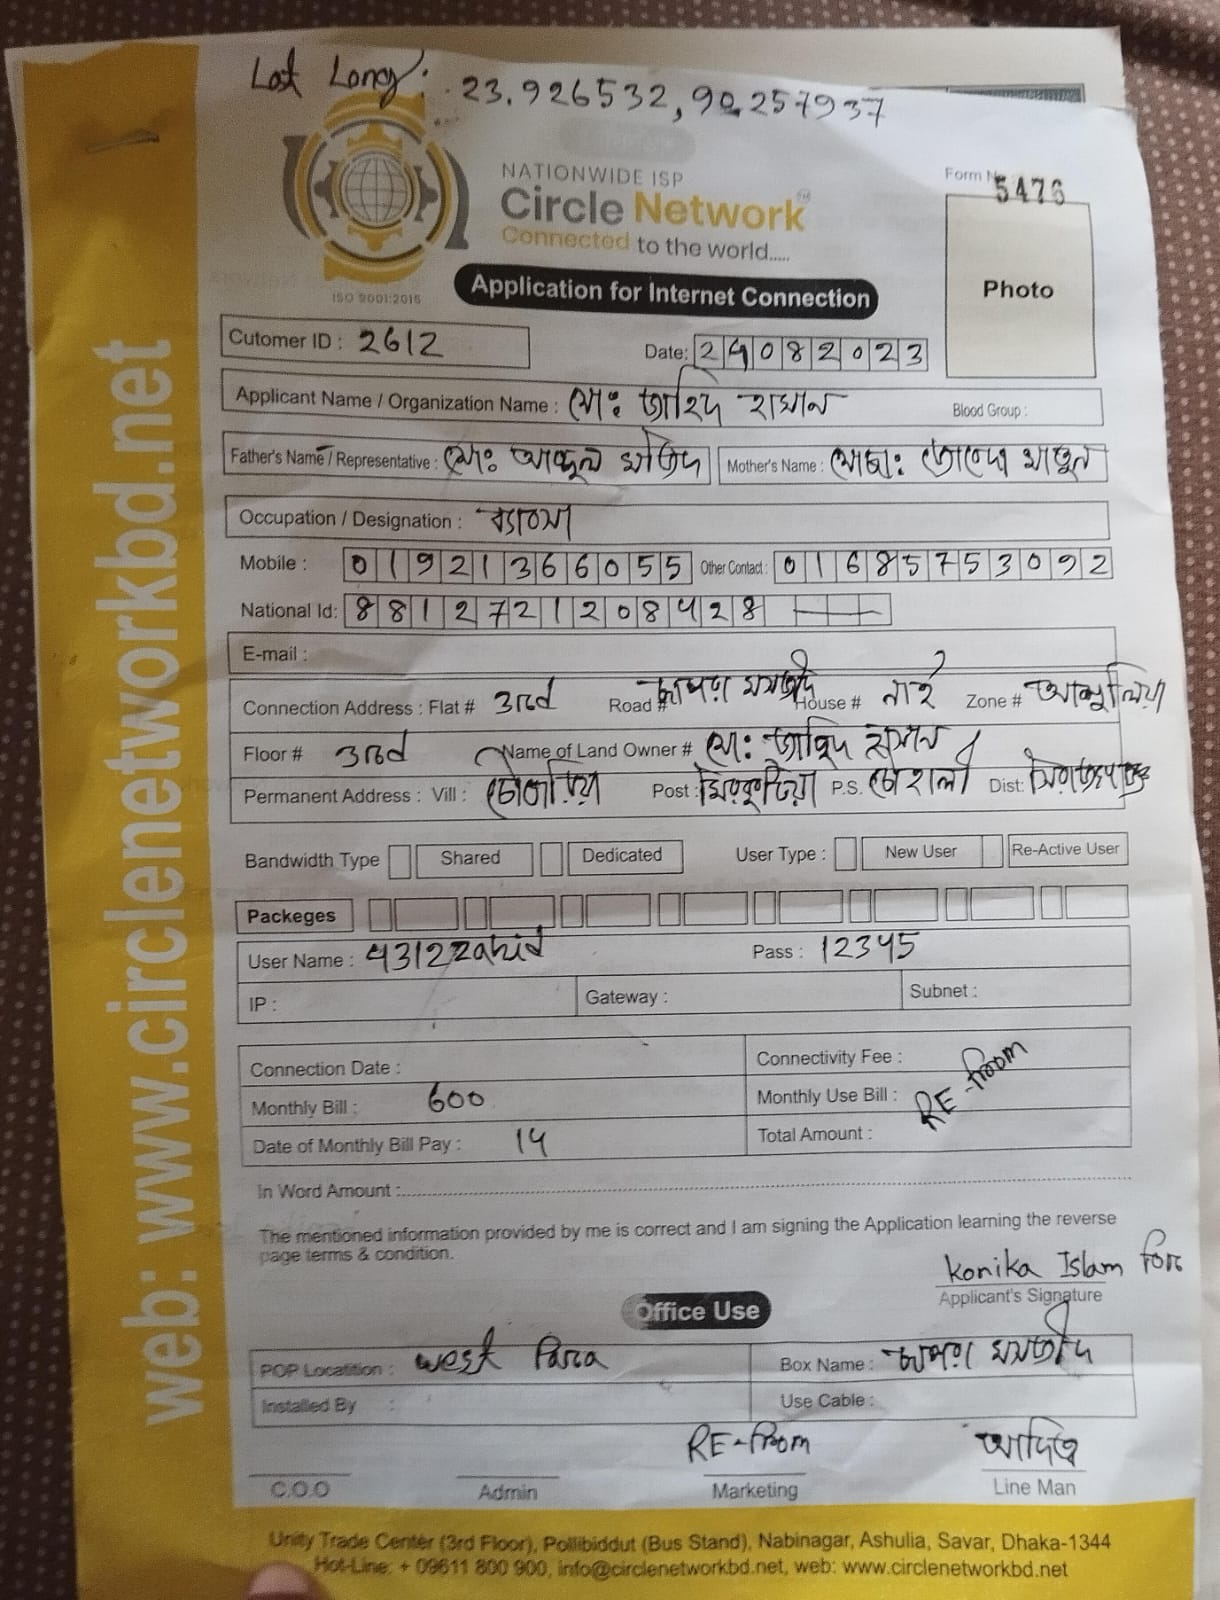 Lat Long: 23.926532, 90.257937
NATIONWIDE ISP
Circle Network
Connected to the world.....
ISO 9001:2015
Form No 5476
Photo
Application for Internet Connection
Cutomer ID : 2612
Date: 24082023
Applicant Name / Organization Name : মোঃ জাহিদ হাসান
Blood Group :
Father's Name / Representative : মোঃ আব্দুল মজিদ
Mother's Name : মোছাঃ
Occupation / Designation : ব্যবসা
Mobile : 01921366055 Other Contact : 01685753092
National Id: 8812721208428
E-mail :
Connection Address : Flat # 3rd Road # মসজিদ House # নাই Zone # আশুলিয়া
Floor # 3rd Name of Land Owner # মোঃ জাহিদ হাসান
Permanent Address : Vill : Post : P.S. চৌহালী Dist: সিরাজগঞ্জ
Bandwidth Type Shared Dedicated User Type : New User Re-Active User
Packeges
User Name : 4312zahid Pass : 12345
IP : Gateway : Subnet :
Connection Date : Connectivity Fee :
Monthly Bill : 600 Monthly Use Bill : RE-From
Date of Monthly Bill Pay : 14 Total Amount :
In Word Amount :
The mentioned information provided by me is correct and I am signing the Application learning the reverse
page terms & condition.
Konika Islam For
Applicant's Signature
Office Use
POP Locatition : West Para Box Name : মসজিদ
Installed By : Use Cable :
RE-From
C.O.O Admin Marketing Line Man
Unity Trade Center (3rd Floor), Pollibiddut (Bus Stand), Nabinagar, Ashulia, Savar, Dhaka-1344
Hot-Line: + 09611 800 900, info@circlenetworkbd.net, web: www.circlenetworkbd.net
web: www.circlenetworkbd.net